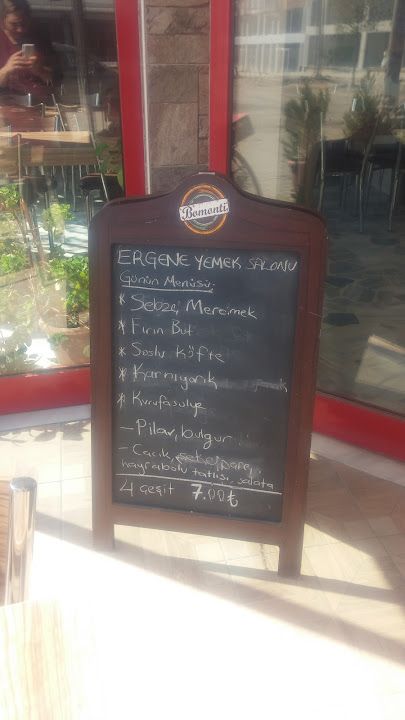 Bomonti
ERGENE YEMEK SALONU
Günün Menüsü:
* Sebze, Mercimek
* Fırın But
* Soslu Köfte
* Karnıyarık
* Kurufasulye
- Pilav, bulgur
- Cacık,
hayrabolu tatlısı, salata
4 çeşit 7.00 ₺